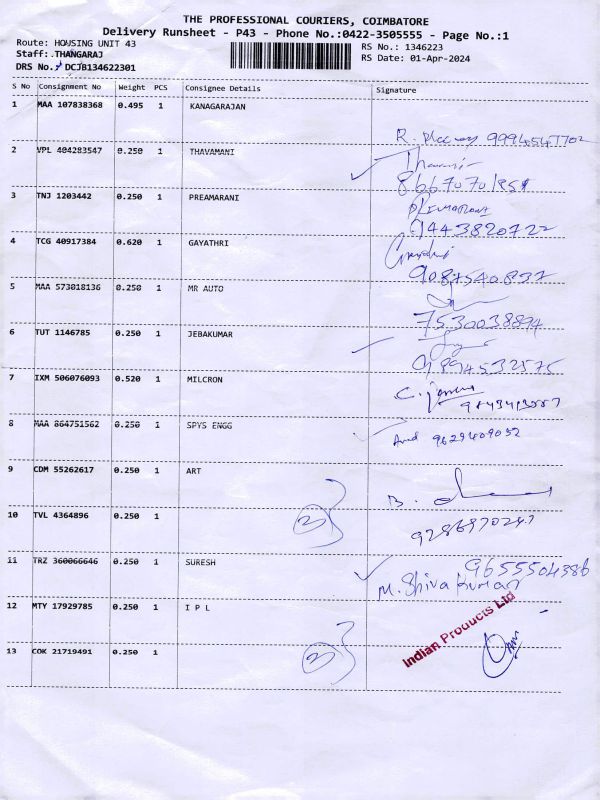 THE PROFESSIONAL COURIERS, COIMBATORE
Delivery Runsheet - P43 - Phone No.:0422-3505555 - Page No.:1
Route: HOUSING UNIT 43
RS No.: 1346223
Staff: THANGARAJ
RS Date: 01-Apr-2024
DRS No.: DCJB134622301
S No Consignment No Weight PCS Consignee Details Signature
1 MAA 107838368 0.495 1 KANAGARAJAN
R. 9994547702
2 VPL 404283547 0.250 1 THAVAMANI
3 TNJ 1203442 0.250 1 PREAMARANI
9443820722
4 TCG 40917384 0.620 1 GAYATHRI
9087540837
5 MAA 573018136 0.250 1 MR AUTO
7530038894
6 TUT 1146785 0.250 1 JEBAKUMAR
9894532575
7 IXM 506076093 0.520 1 MILCRON
C.
8 MAA 864751562 0.250 1 SPYS ENGG
9629409032
9 CDM 55262617 0.250 1 ART
B.
10 TVL 4364896 0.250 1
2
11 TRZ 360066646 0.250 1 SURESH
9655504386
M. Shiva Kumar
12 MTY 17929785 0.250 1 I P L
Indian Products Ltd
13 COK 21719491 0.250 1
2